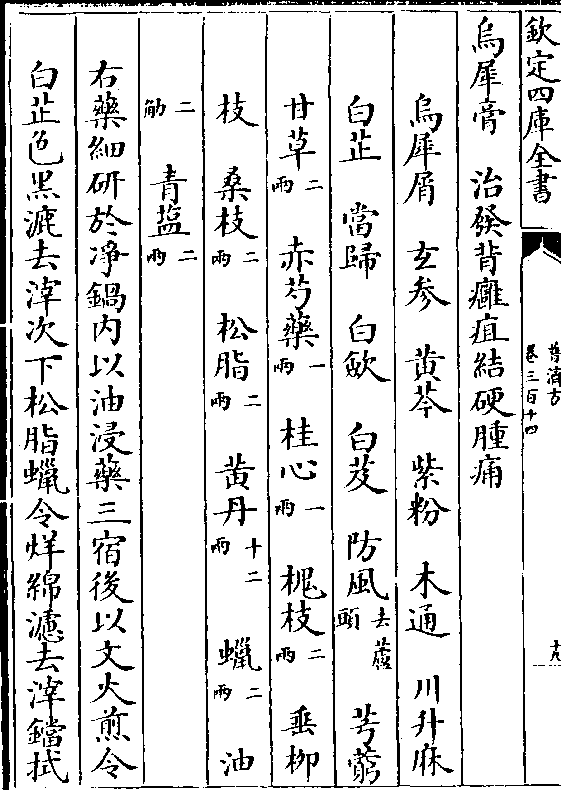 欽定四庫全書
普濟方
卷三百十四
烏犀膏 治發背癰疽結硬腫痛
烏犀屑 玄参 黄芩 紫粉 木通 川升麻
白芷 當歸 白蘞 白芨 防風去蘆頭 芎藭
甘草二兩 赤芍藥一兩 桂心一兩 槐枝二兩 垂柳
枝 桑枝二兩 松脂二兩 黄丹十二兩 蠟二兩 油
二觔 青塩二兩
右藥細研於净鍋内以油浸藥三宿後以文火煎令
白芷色黒漉去滓次下松脂蠟令烊綿濾去滓鐺拭